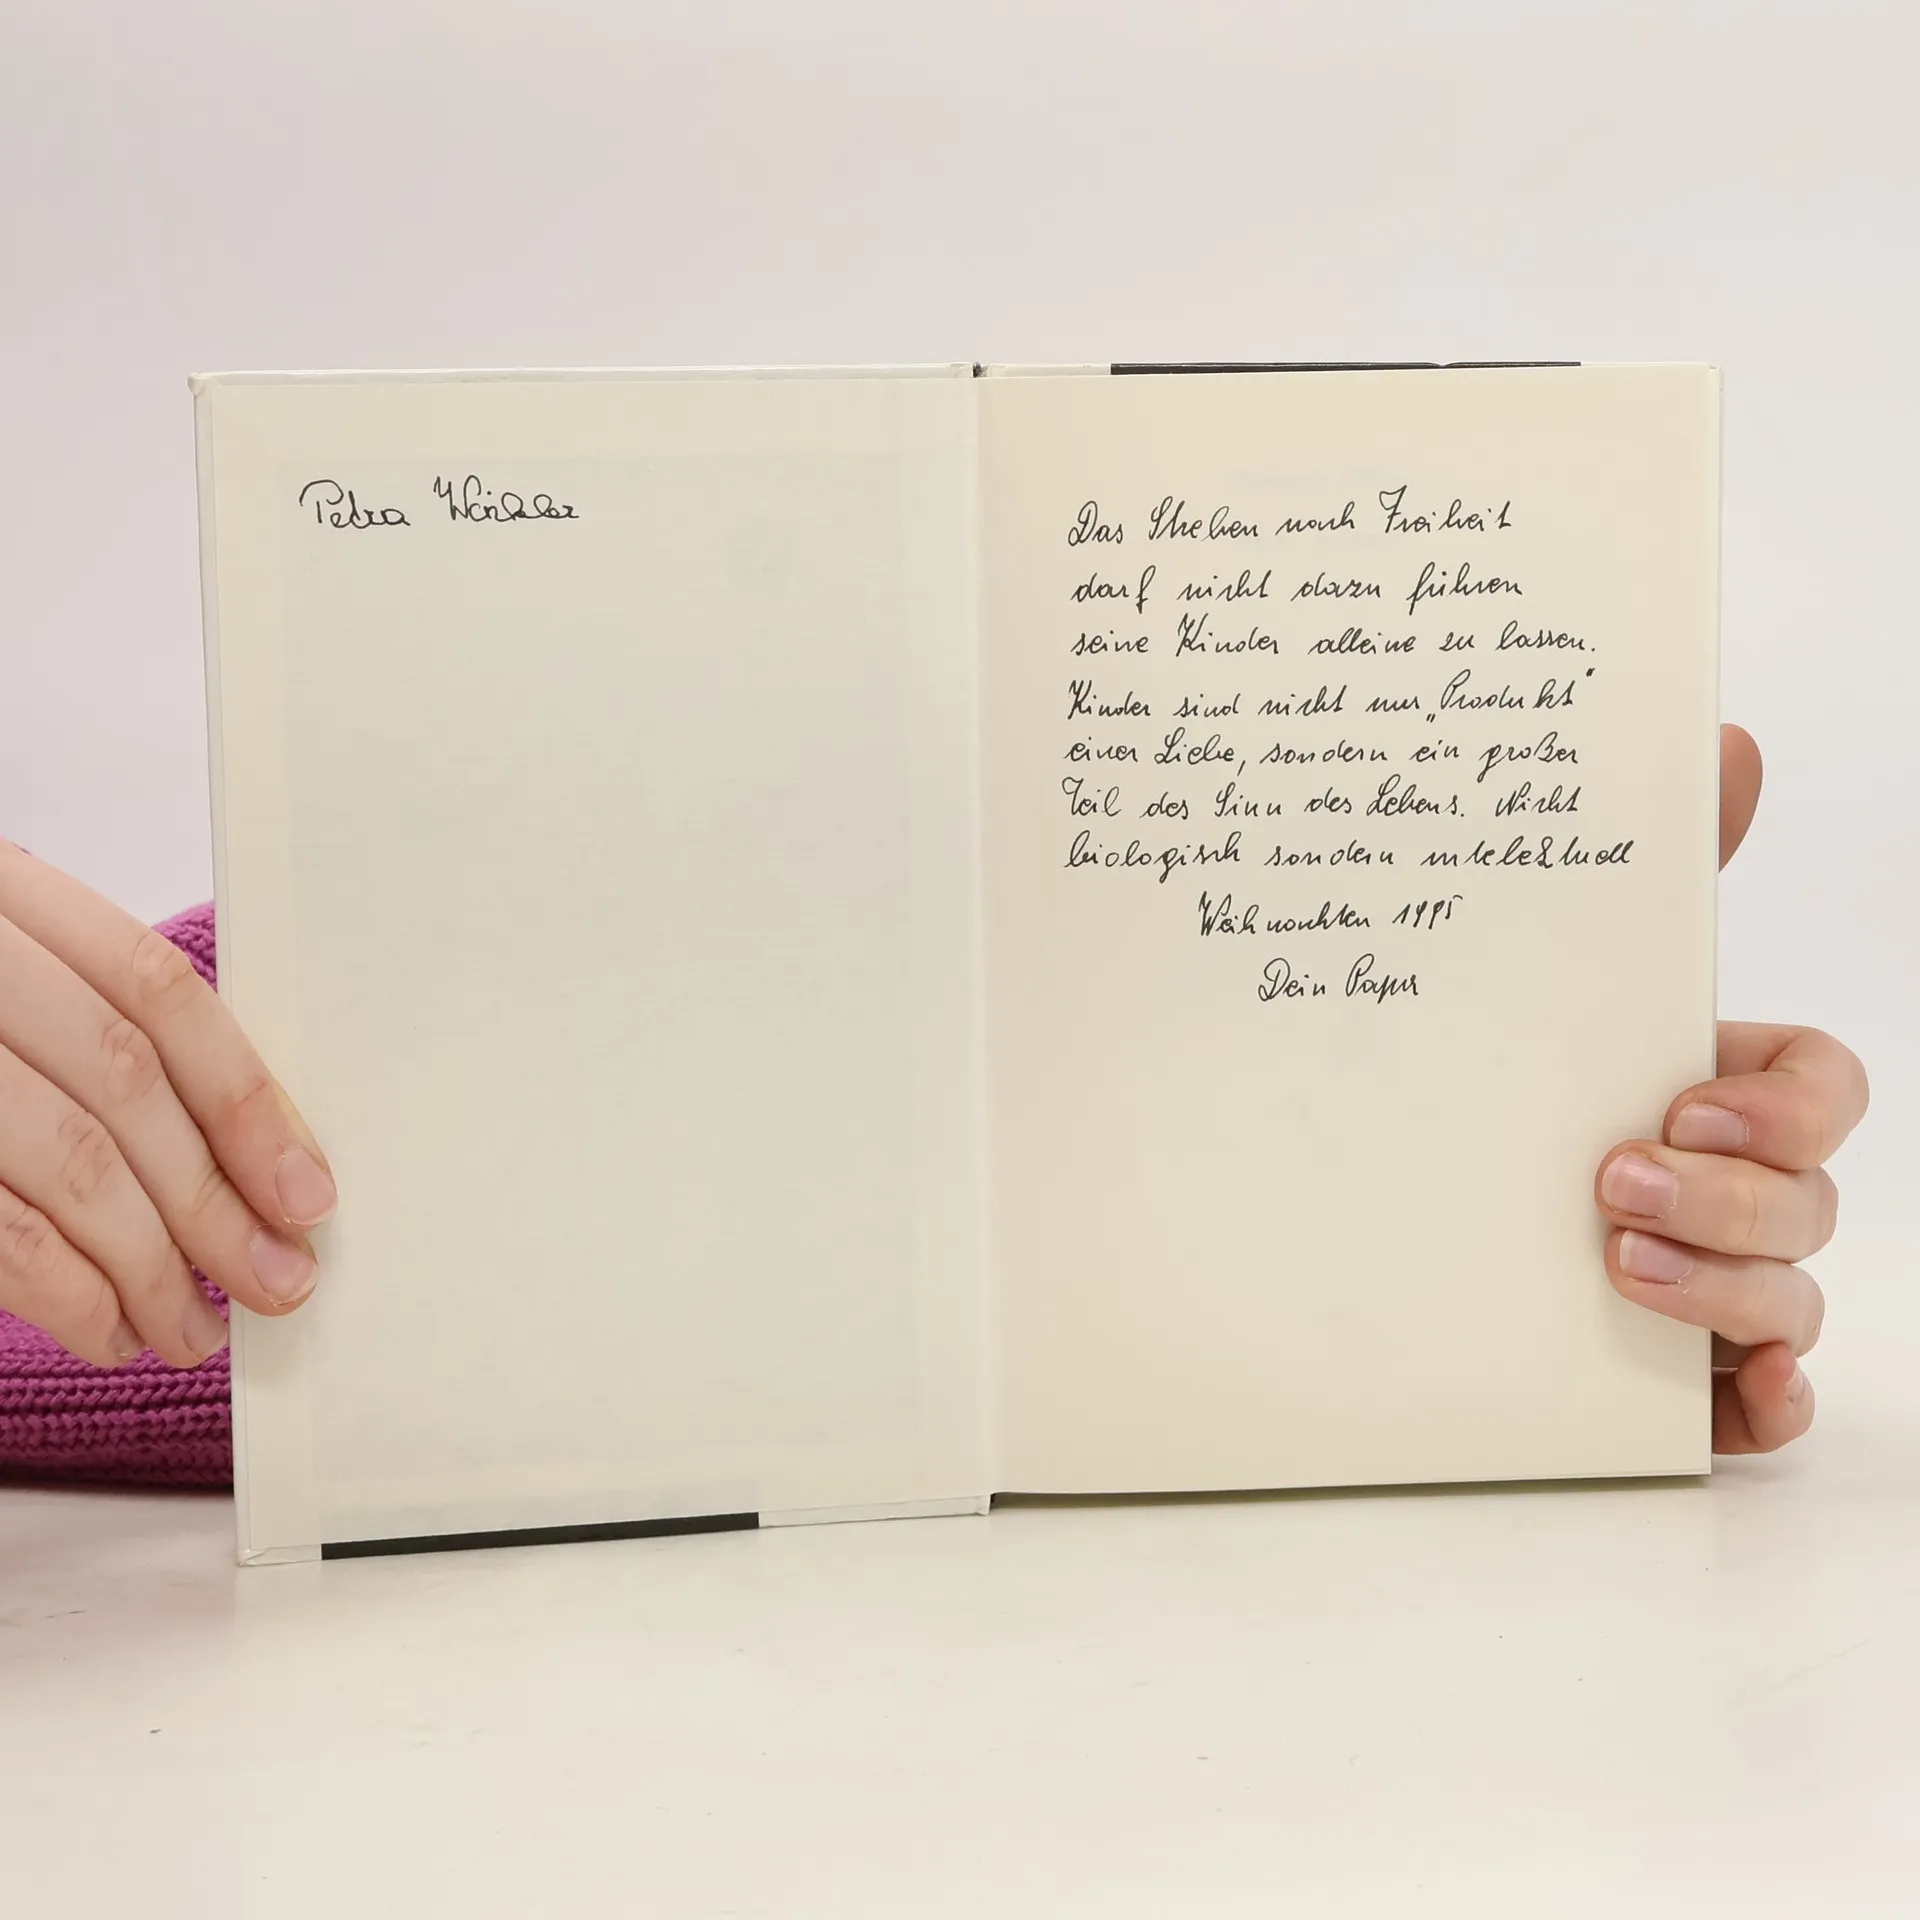 Petra Winkler
Das Streben nach Freiheit
darf nicht dazu führen
seine Kinder alleine zu lassen.
Kinder sind nicht nur „Produkt“
einer Liebe, sondern ein großer
Teil des Sinn des Lebens. Nicht
biologisch sondern intelektuell
Weihnachten 1995
Dein Papa